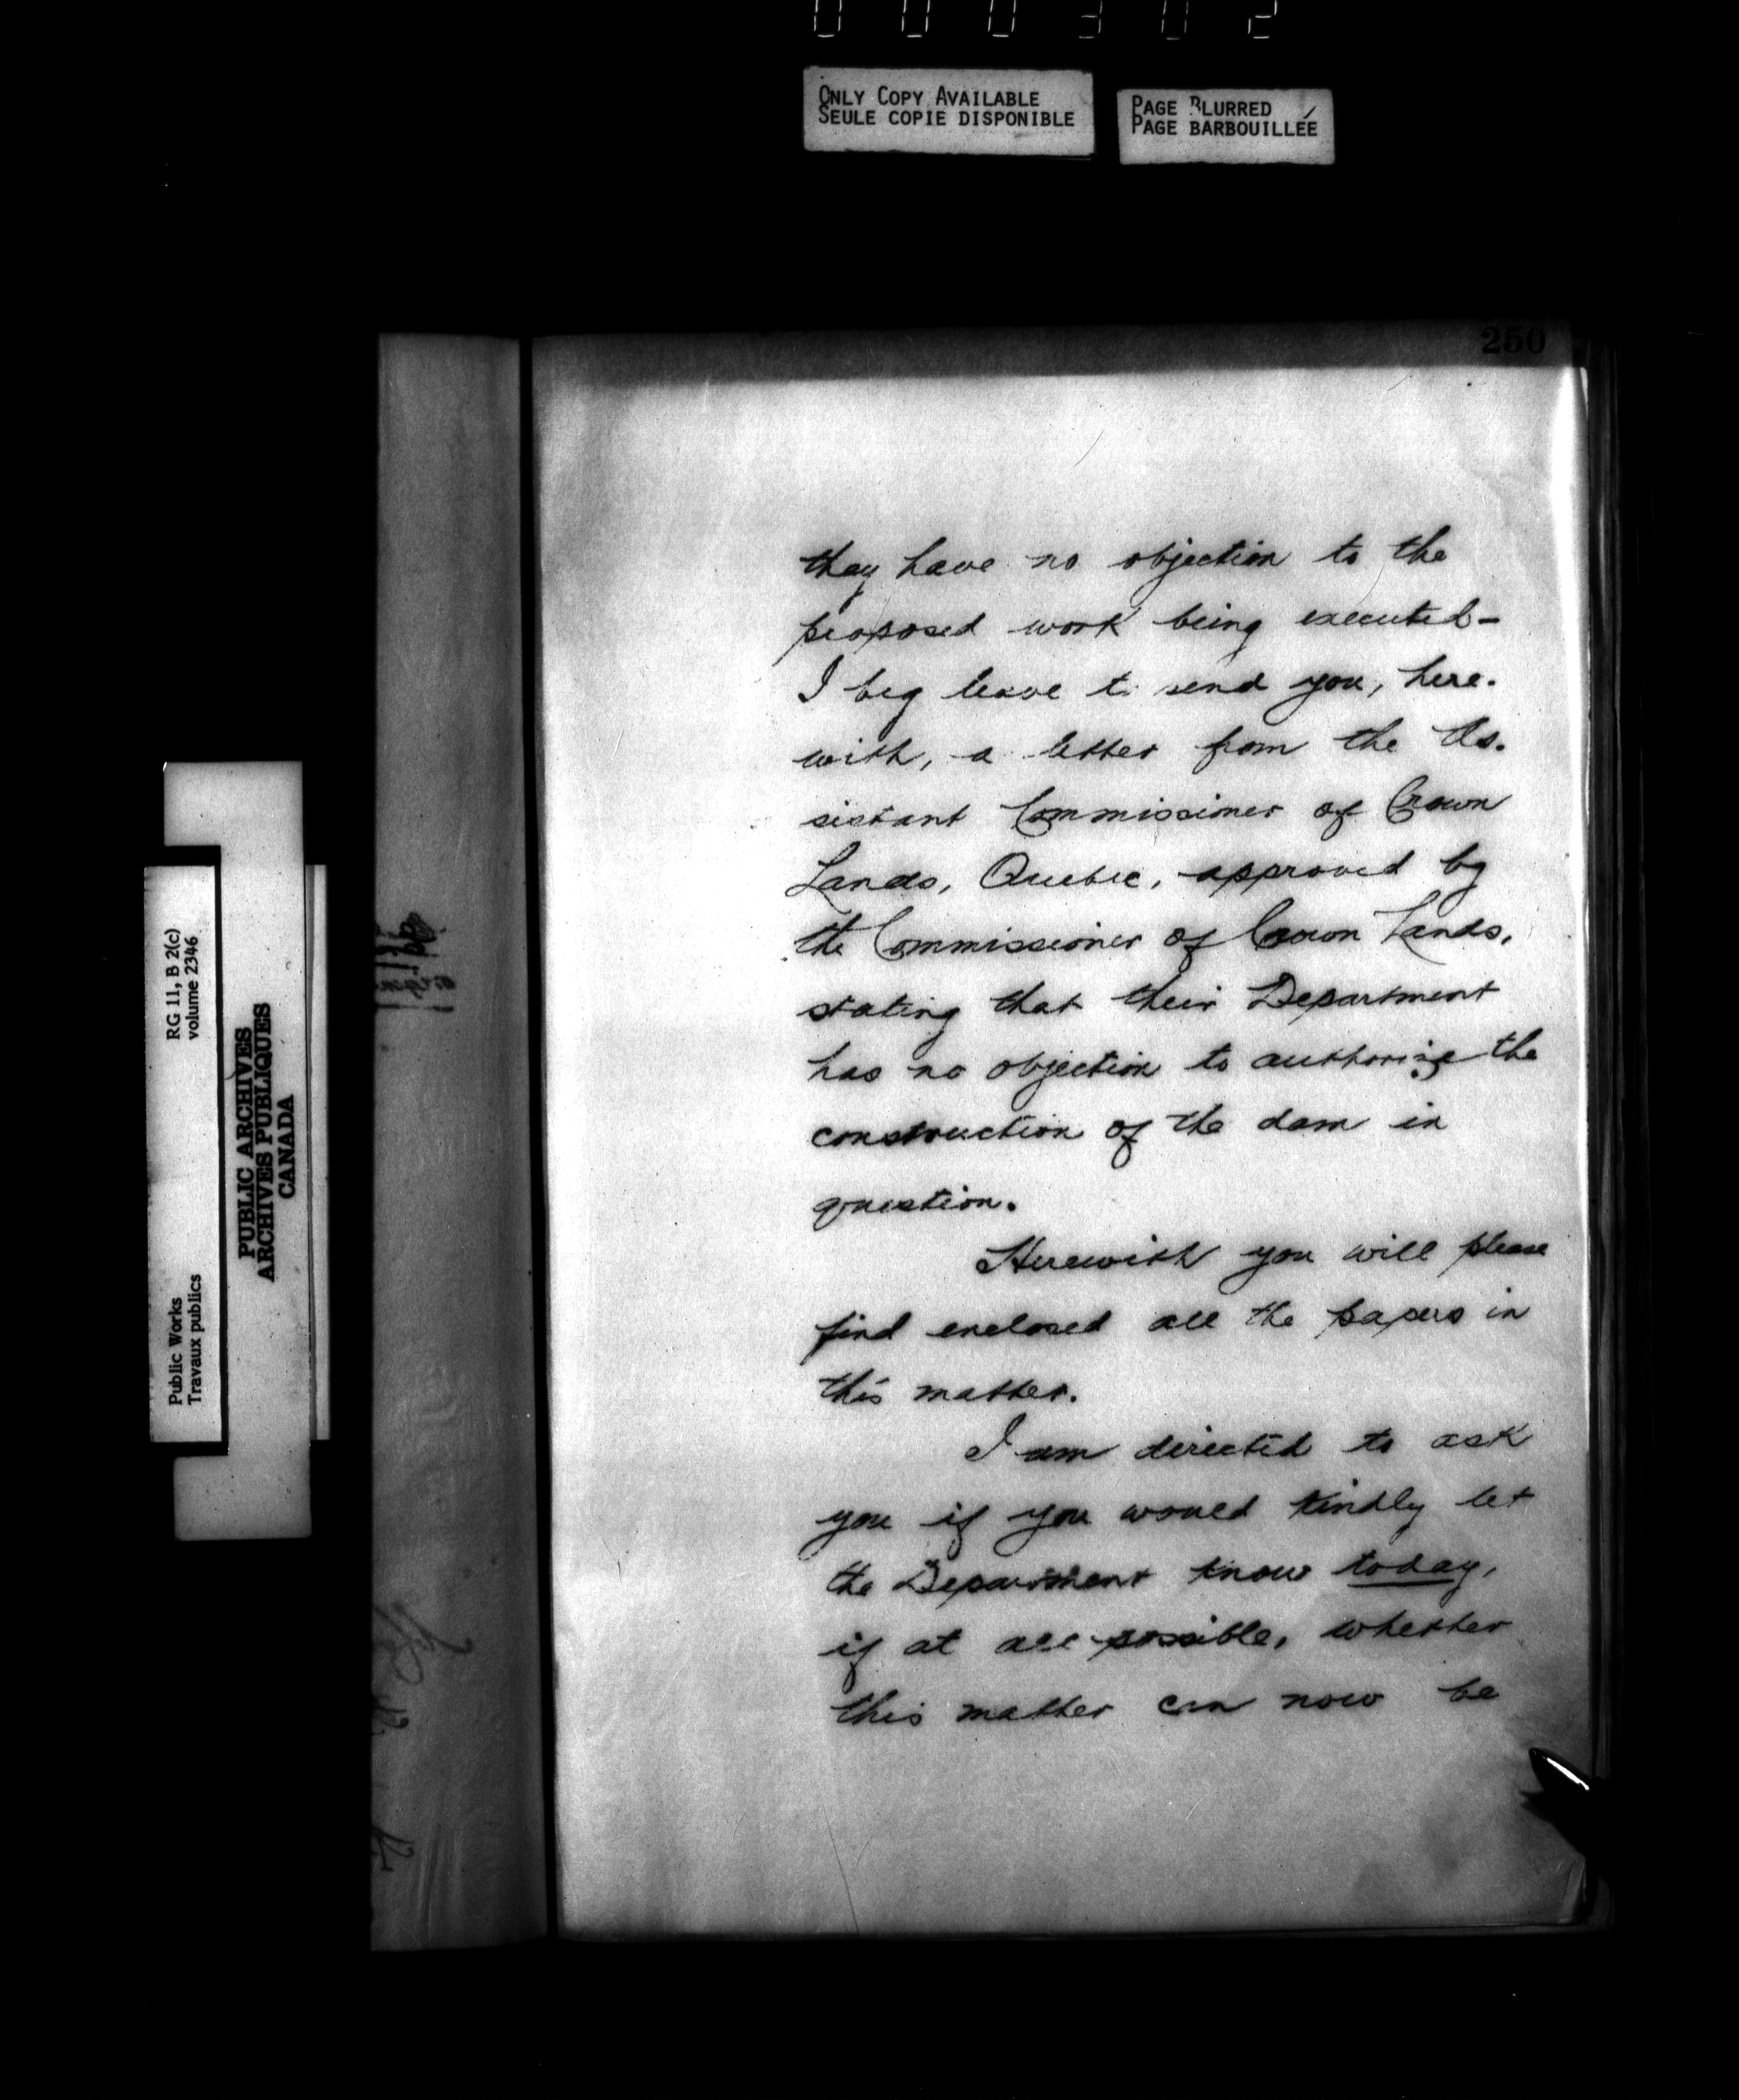 000302
ONLY COPY AVAILABLE
SEULE COPIE DISPONIBLE
PAGE BLURRED
PAGE BARBOUILLÉE
250
they have no objection to the
proposed work being executed-
I beg leave to send you, here-
with, a letter from the As-
sistant Commissioner of Crown
Lands, Quebec, approved by
the Commissioner of Crown Lands,
stating that their Department
has no objection to authorize the
construction of the dam in
question.
Herewith you will please
find enclosed all the papers in
this matter.
I am directed to ask
you if you would kindly let
the Department know today,
if at all possible, whether
this matter can now be
RG 11, B 2(c)
volume 2346
Public Works
Travaux publics
PUBLIC ARCHIVES
ARCHIVES PUBLIQUES
CANADA